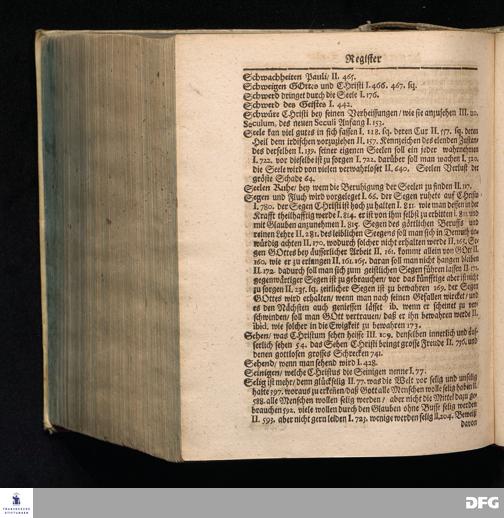 Register
Schwachheiten Pauli/ II. 465.
Schweigen GOttes und CHristi I. 466. 467. sq.
Schwerd dringet durch die Seele I. 176.
Schwerd des Geistes I. 442.
Schwüre CHristi bey seinen Verheissungen/ wie sie anzusehen III. 20.
Seculum, des neuen Seculi Anfang I. 153.
Seele kan viel gutes in sich fassen I. 118. sq. deren Cur II. 557. sq. deren
Heil dem irdischen vorzuziehen II. 157. Kennzeichen des elenden Zustandes
desselben I. 139. seiner eigenen Seelen soll ein jeder wahrnehmen
I. 722. vor dieselbe ist zu sorgen I. 722. darüber soll man wachen I. 320.
die Seele wird von vielen verwahrloset II. 640. Seelen Verlust der
gröste Schade 64.
Seelen Ruhe/ bey wem die Beruhigung der Seelen zu finden II. 117.
Segen und Fluch wird vorgeleget I. 66. der Segen ruhete auf CHristo
I. 780. der Segen CHristi ist hoch zu halten I. 811. wie man dessen in der
Krafft theilhafftig werde I. 814. er ist von ihm selbst zu erbitten I. 811. und
mit Glauben anzunehmen I. 815. Segen des göttlichen Beruffs und
reinen Lehre II. 281. des leiblichen Seegens soll man sich in Demuth unwürdig
achten II. 170. wodurch solcher nicht erhalten werde II. 165. Segen
GOttes bey äusserlicher Arbeit II. 161. kommt allein von GOtt II.
160. wie er zu erlangen II. 161. 165. daran soll man nicht hangen bleiben
II. 172. dadurch soll man sich zum geistlichen Segen führen lassen II 172.
gegenwärtiger Segen ist zu gebrauchen/ vor das künfftige aber ist nicht
zu sorgen II. 235. sq. zeitlicher Segen ist zu bewahren 169. der Segen
GOttes wird erhalten/ wenn man nach seinen Gefallen wircket/ und
es den Nächsten auch geniessen lässet ib. wenn er scheinet zu verschwinden/
soll man GOtt vertrauen/ daß er ihn bewahren werde II.
ibid. wie solcher in die Ewigkeit zu bewahren 173.
Sehen/ was CHristum sehen heisse III. 209. denselben innerlich und äusserlich
sehen 54. das Sehen CHristi bringt grosse Freude II. 756. und
denen gottlosen grosses Schrecken 741.
Sehend/ wenn man sehend wird I. 428.
Seinigen/ welche CHristus die Seinigen nenne I. 77.
Selig ist mehr/ denn glückselig II. 77. was die Welt vor selig und unselig
halte 597. woraus zu erkeñen/ daß Gott alle Menschen wolle selig haben II.
588. alle Menschen wollen selig werden/ aber nicht die Mittel dazu gebrauchen
592. viele wollen durch den Glauben ohne Busse selig werden
II. 593. aber nicht gern leiden I. 723. wenige werden selig II. 204. Beweiß
davon
FRANCKESCHE
STIFTUNGEN
DFG